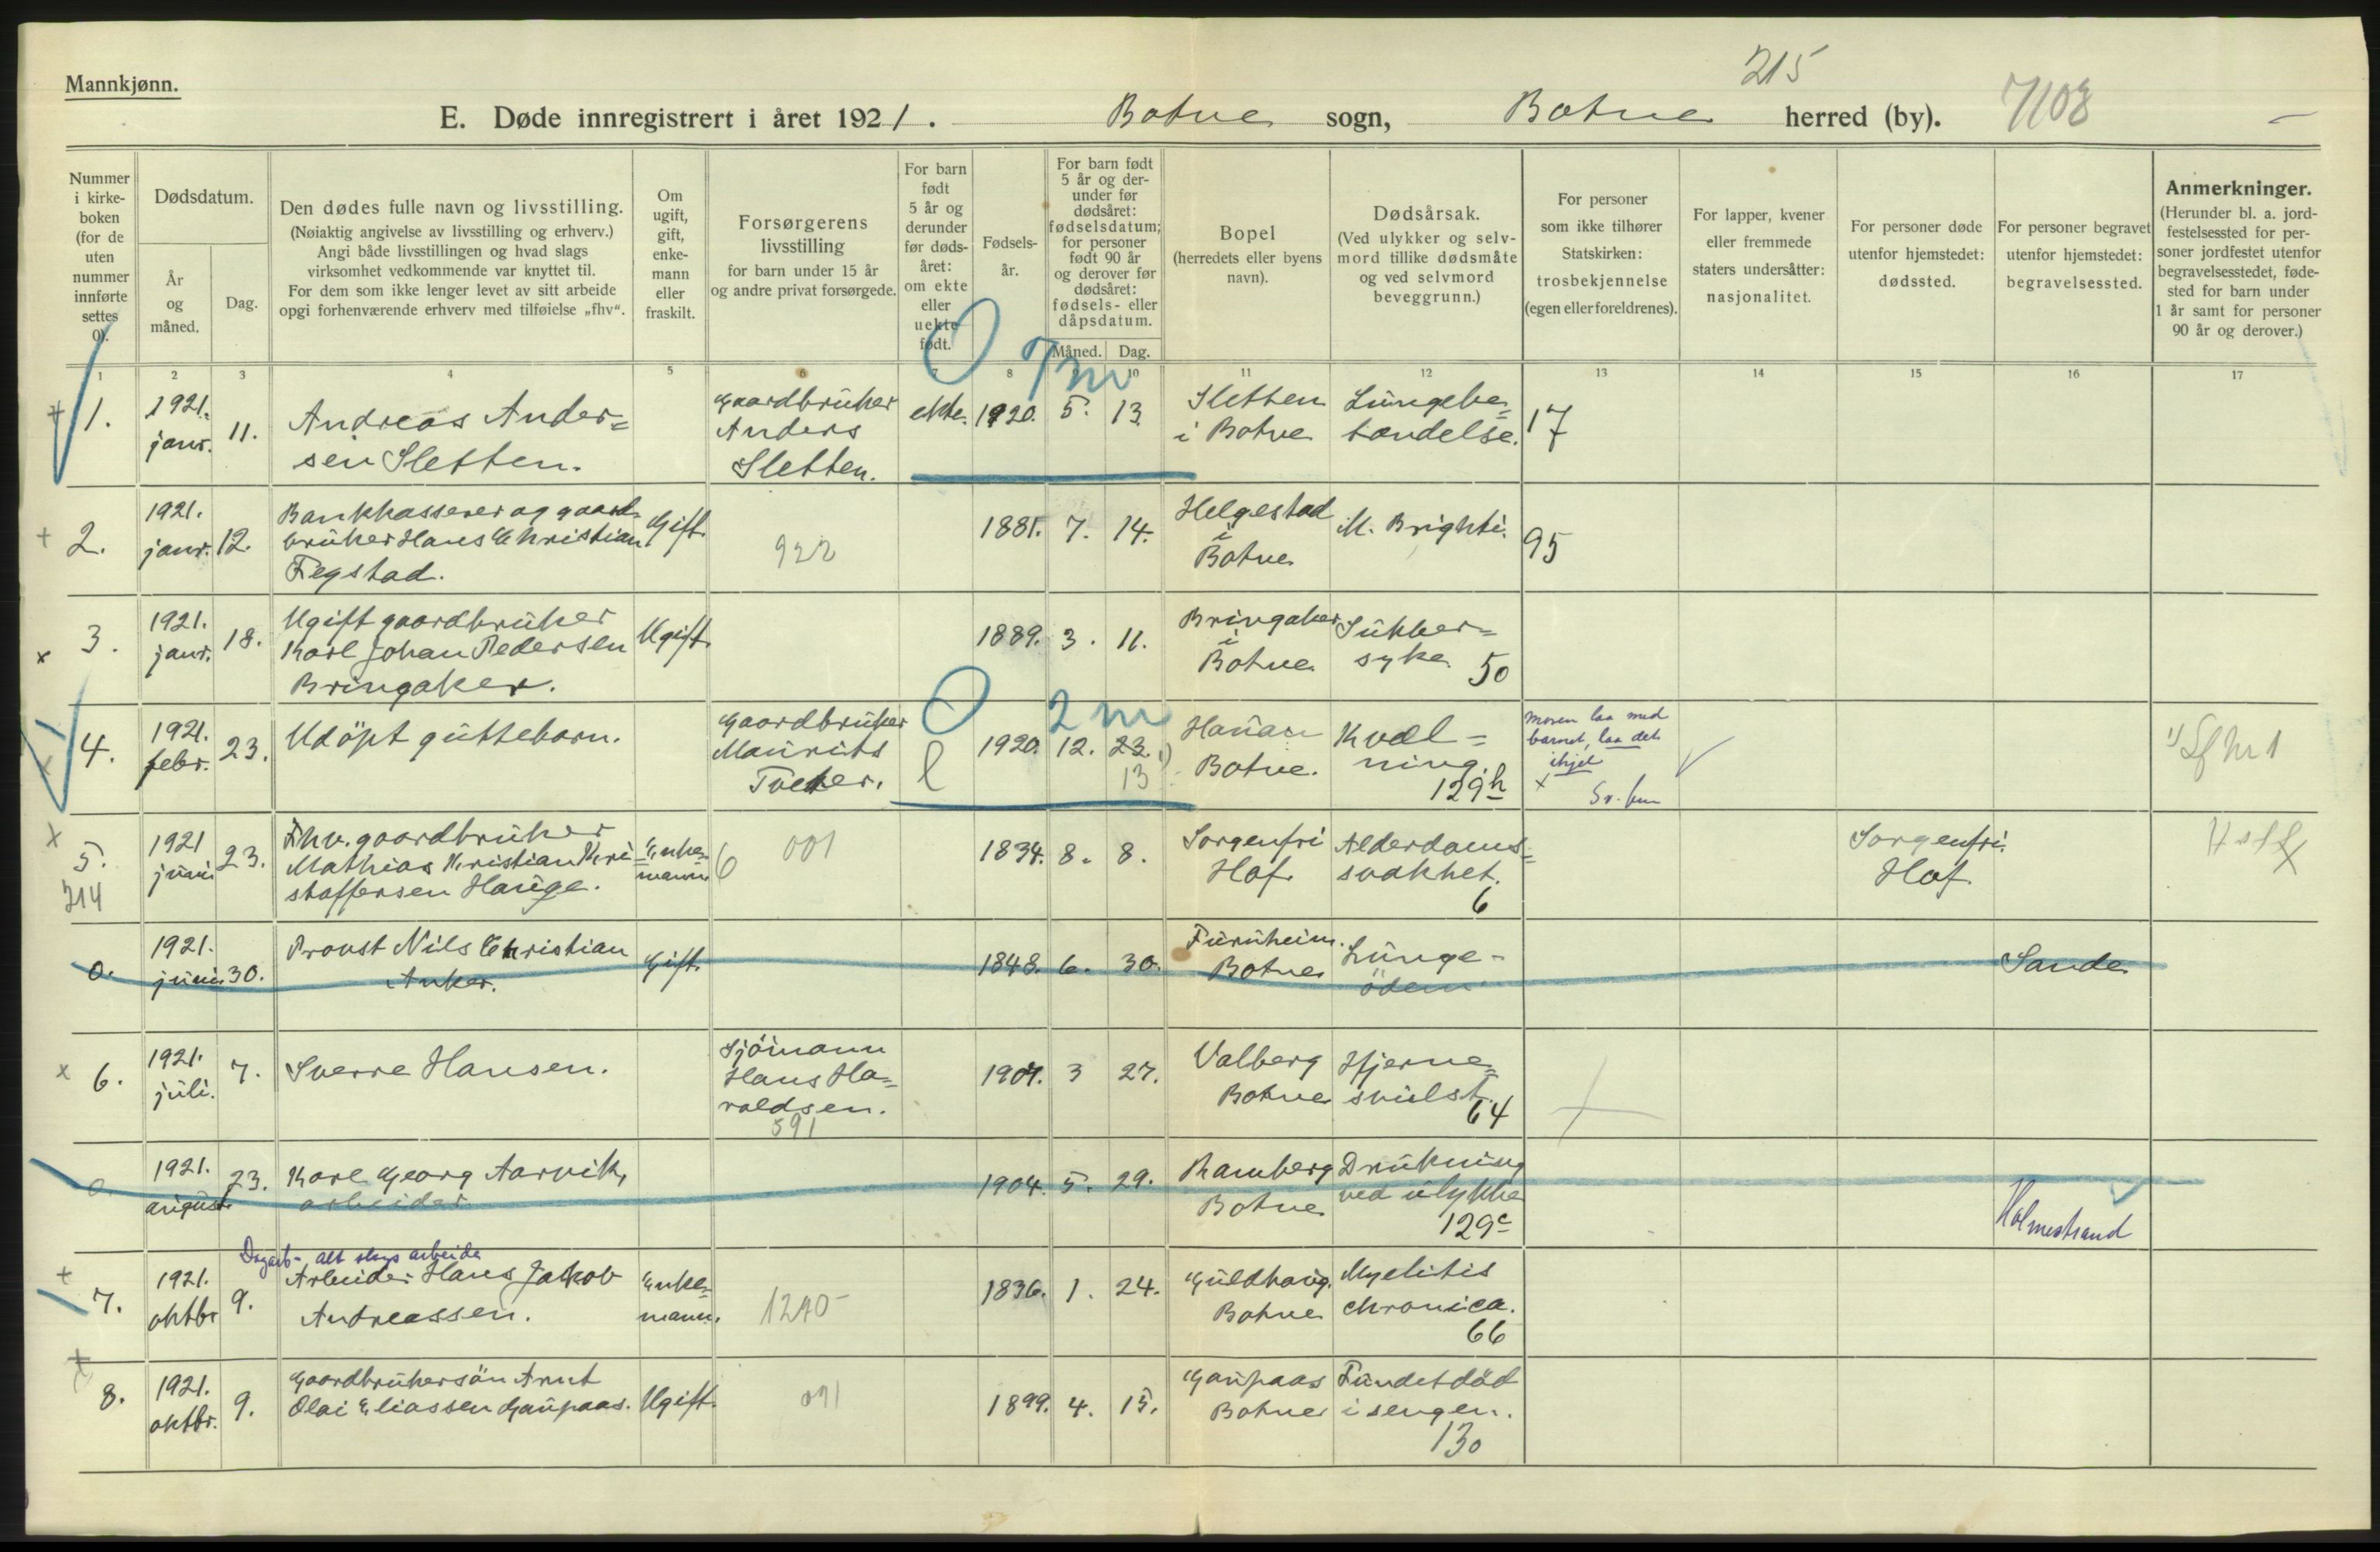 Mannkjønn.
215
E. Døde innregistrert i året 1921. Botne sogn, Botne herred (by). 7108
Nummer
i kirke-
boken
(for de
uten
nummer
innførte
settes
0).
Dødsdatum.
År
og
måned.
Dag.
Den dødes fulle navn og livsstilling.
(Nøiaktig angivelse av livsstilling og erhverv.)
Angi både livsstillingen og hvad slags
virksomhet vedkommende var knyttet til.
For dem som ikke lenger levet av sitt arbeide
opgi forhenværende erhverv med tilføielse „fhv“.
Om
ugift,
gift,
enke-
mann
eller
fraskilt.
Forsørgerens
livsstilling
for barn under 15 år
og andre privat forsørgede.
For barn
født
5 år og
derunder
før døds-
året:
om ekte
eller
uekte
født.
Fødsels-
år.
For barn født
5 år og der-
under før
dødsåret:
fødselsdatum;
for personer
født 90 år
og derover før
dødsåret:
fødsels- eller
dåpsdatum.
Måned. Dag.
Bopel
(herredets eller byens
navn).
Dødsårsak.
(Ved ulykker og selv-
mord tillike dødsmåte
og ved selvmord
beveggrunn.)
For personer
som ikke tilhører
Statskirken:
trosbekjennelse
(egen eller foreldrenes).
For lapper, kvener
eller fremmede
staters undersåtter:
nasjonalitet.
For personer døde
utenfor hjemstedet:
dødssted.
For personer begravet
utenfor hjemstedet:
begravelsessted.
Anmerkninger.
(Herunder bl. a. jord-
festelsessted for per-
soner jordfestet utenfor
begravelsesstedet, føde-
sted for barn under
1 år samt for personer
90 år og derover.)
1 2 3 4 5 6 7 8 9 10 11 12 13 14 15 16 17
0 7 m
1.
1921.
janr.
11.
Andreas Ander=
sen Sletten.
Gaardbruker
Anders
Sletten.
ekte. 1920. 5. 13.
Sletten
i Botne
Lungebe=
tændelse.
17
2.
1921.
janr.
12.
Bankkasserer og gaard-
bruker Hans Christian
Fegstad.
Gift.
922
1881. 7. 14.
Helgestad
i
Botne
M. Brighti.
95
3.
1921.
janr.
18.
Ugift gaardbruker
Karl Johan Pedersen
Bringaker.
Ugift.
1889. 3. 11.
Bringaker
i
Botne
Sukker=
syke.
50
0 2 m
4.
1921.
febr.
23.
Udöpt guttebarn.
Gaardbruker
Maurits
l 1920. 12. 23. 1)
13
Hanan
Botne.
Kvæl=
ning.
129h
moren laa med
barnet, laa det
ihjel
x
1)
5.
214
1921
juni
23.
Fhv. gaardbruker
Mathias Kristian Kri=
stoffersen Hauge.
Enke=
mann.
6 001
1834. 8. 8.
Sorgenfri
Hof.
Alderdoms=
svakhet.
6
Sorgenfri.
Hof.
0.
1921.
juni
30.
Provst Nils Christian
Anker.
Gift.
1848. 6. 30.
Furuheim.
Botne
Lunge-
ödem
Sande
6.
1921.
juli.
7.
Sverre Hansen.
Sjömann
Hans Ha=
raldsen.
591
1907. 3 27.
Valberg
Botne
Hjerne=
svulst.
64
0.
1921.
august.
23.
Karl Georg Aarvik,
arbeider
1904. 5. 29.
Ramberg
Botne
Drukning
ved ulykke
129c
Holmestrand
Dagarb- alt slags arbeide
7.
1921.
oktbr
9.
Arbeider Hans Jakob
Andreassen.
Enke=
mann.
1240-
1836. 1. 24.
Guldhaug.
Botne
Myelitis
chronica.
66
8.
1921.
oktbr.
9.
Gaardbrukersön Arnt
Olai Eliassen Gaupaas.
Ugift.
1899. 4. 15.
Gaupaas
Botne
Fundet död
i sengen.
130